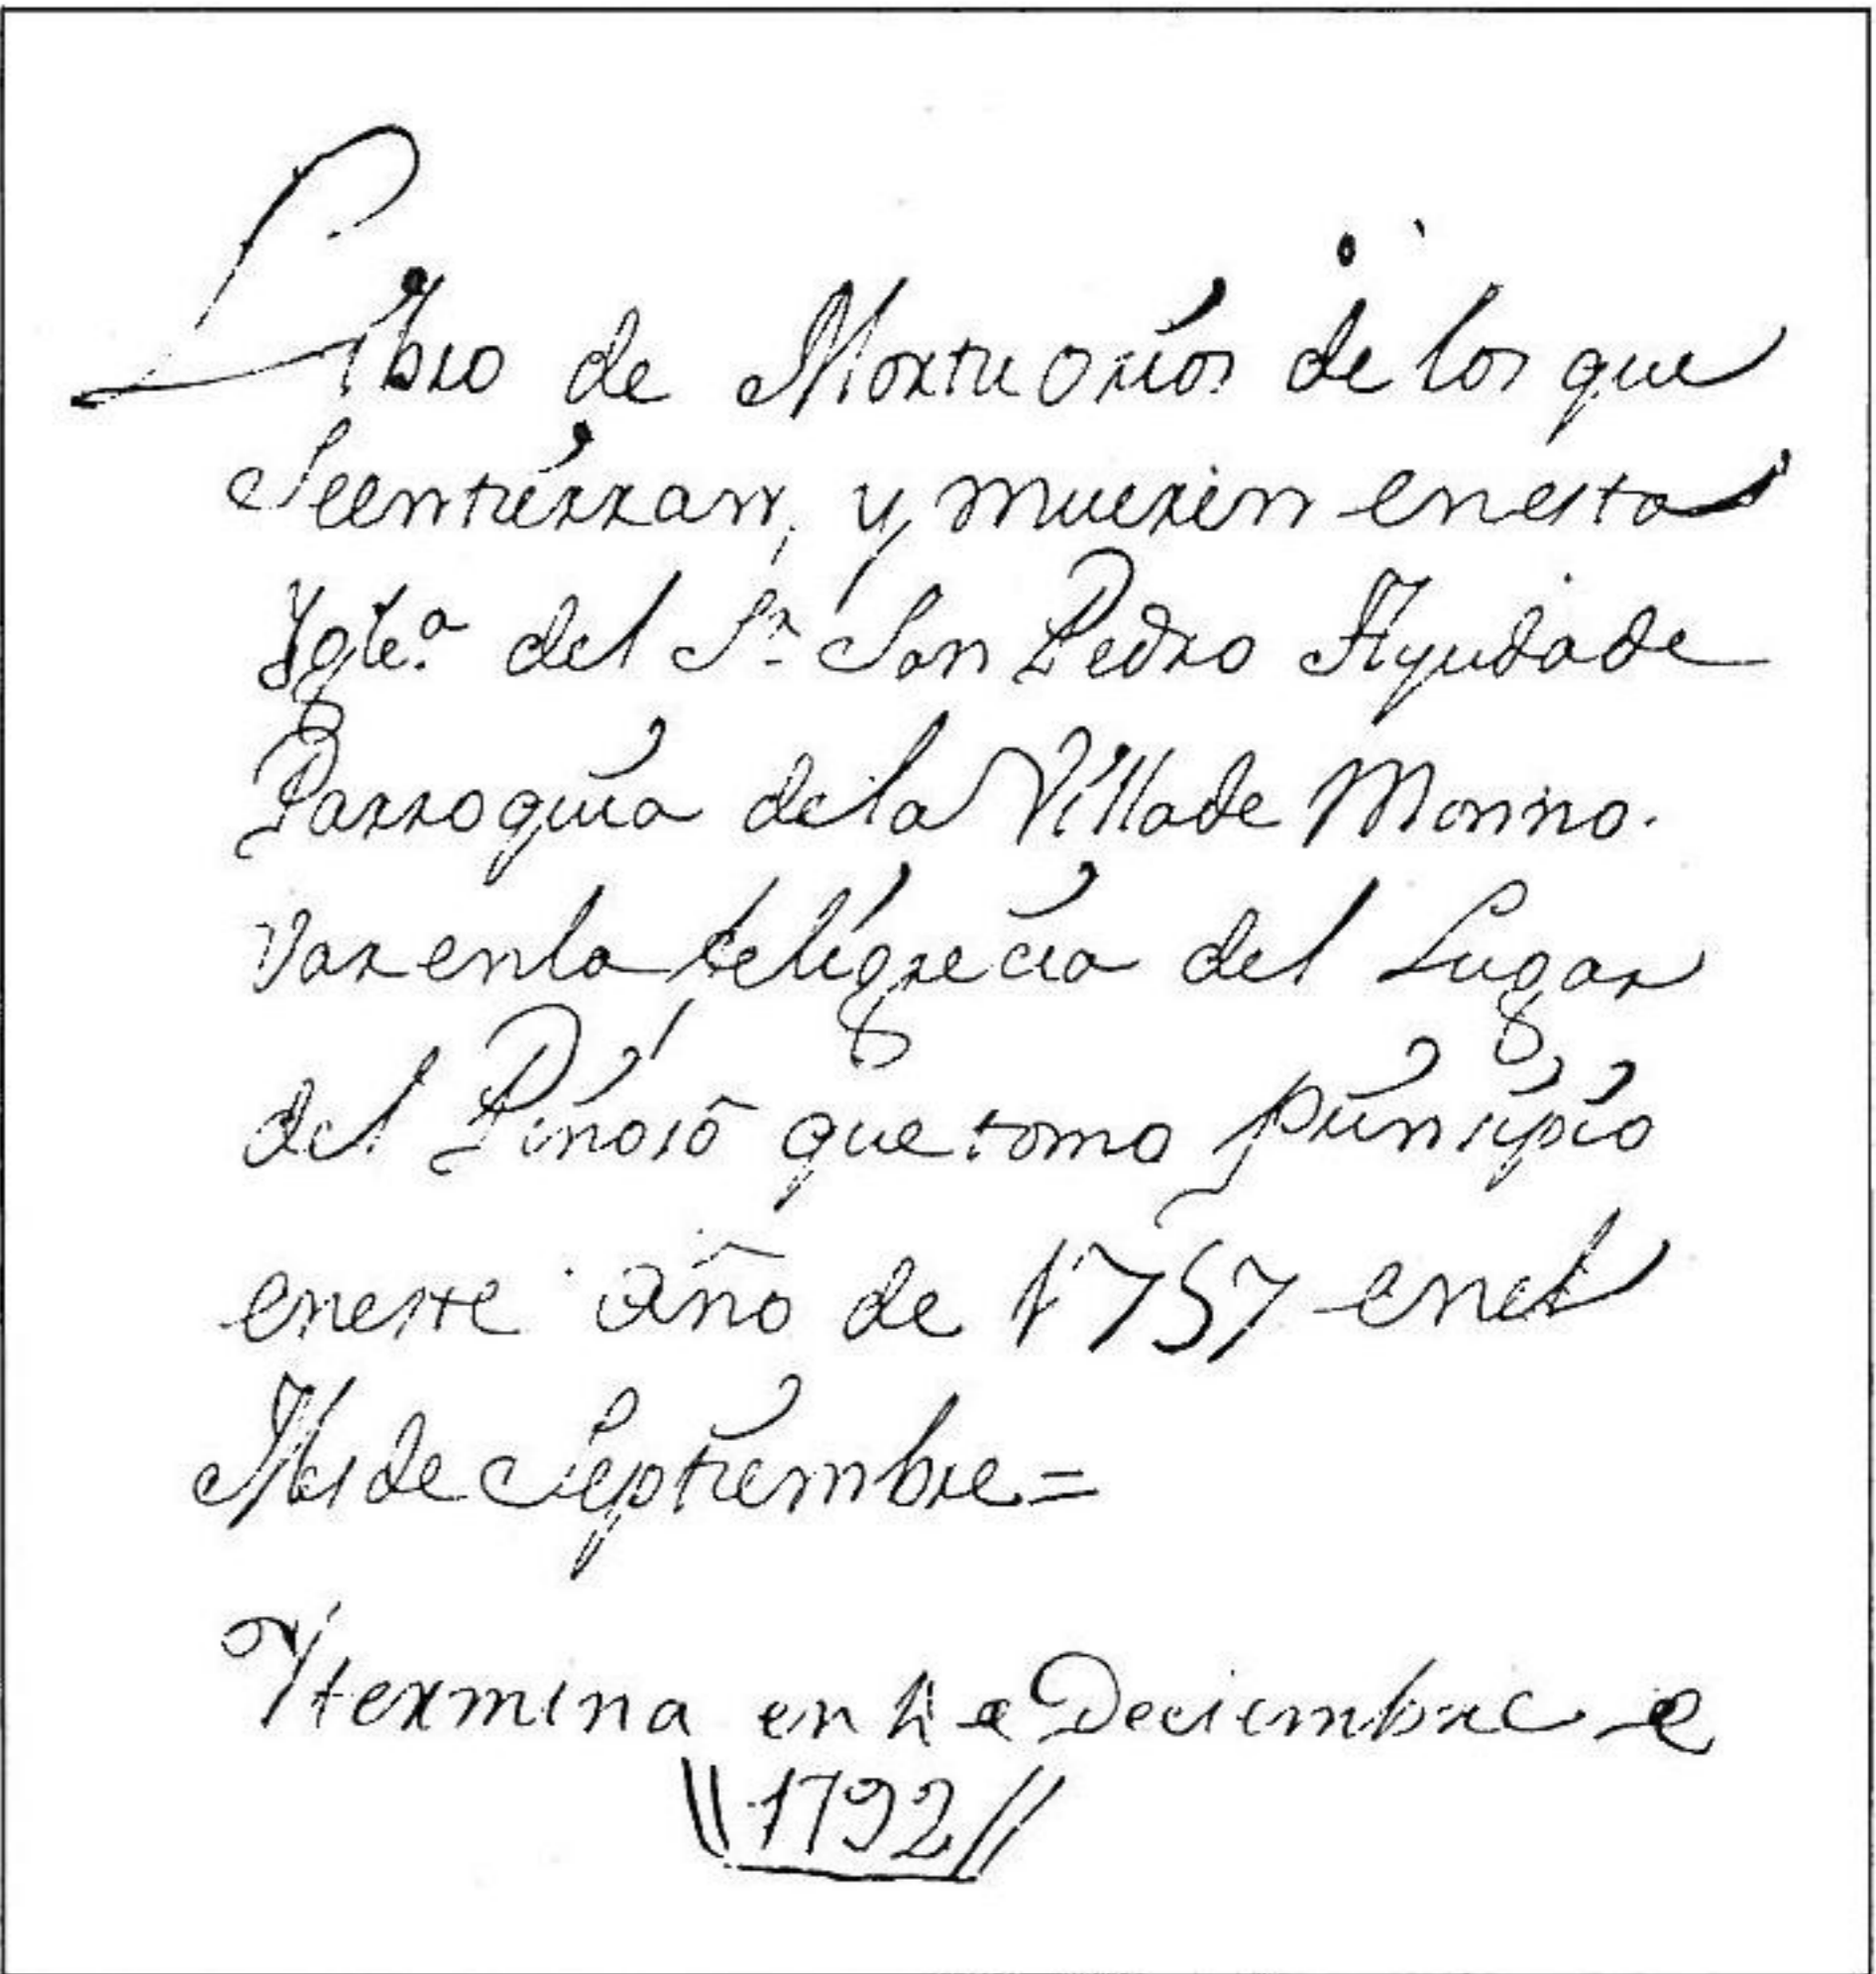 Libro de Mortuorios de los que
Seentierran, y mueren enesta
Ygle.ª del S.r San Pedro Ayudade
Parroquia dela Villade Mono.
var enla feligrecia del Lugar
del Pinoso que tomo prinsipio
eneste año de 1757 enel
Mes de Septiembre =
Y termina en Deciembre
1792